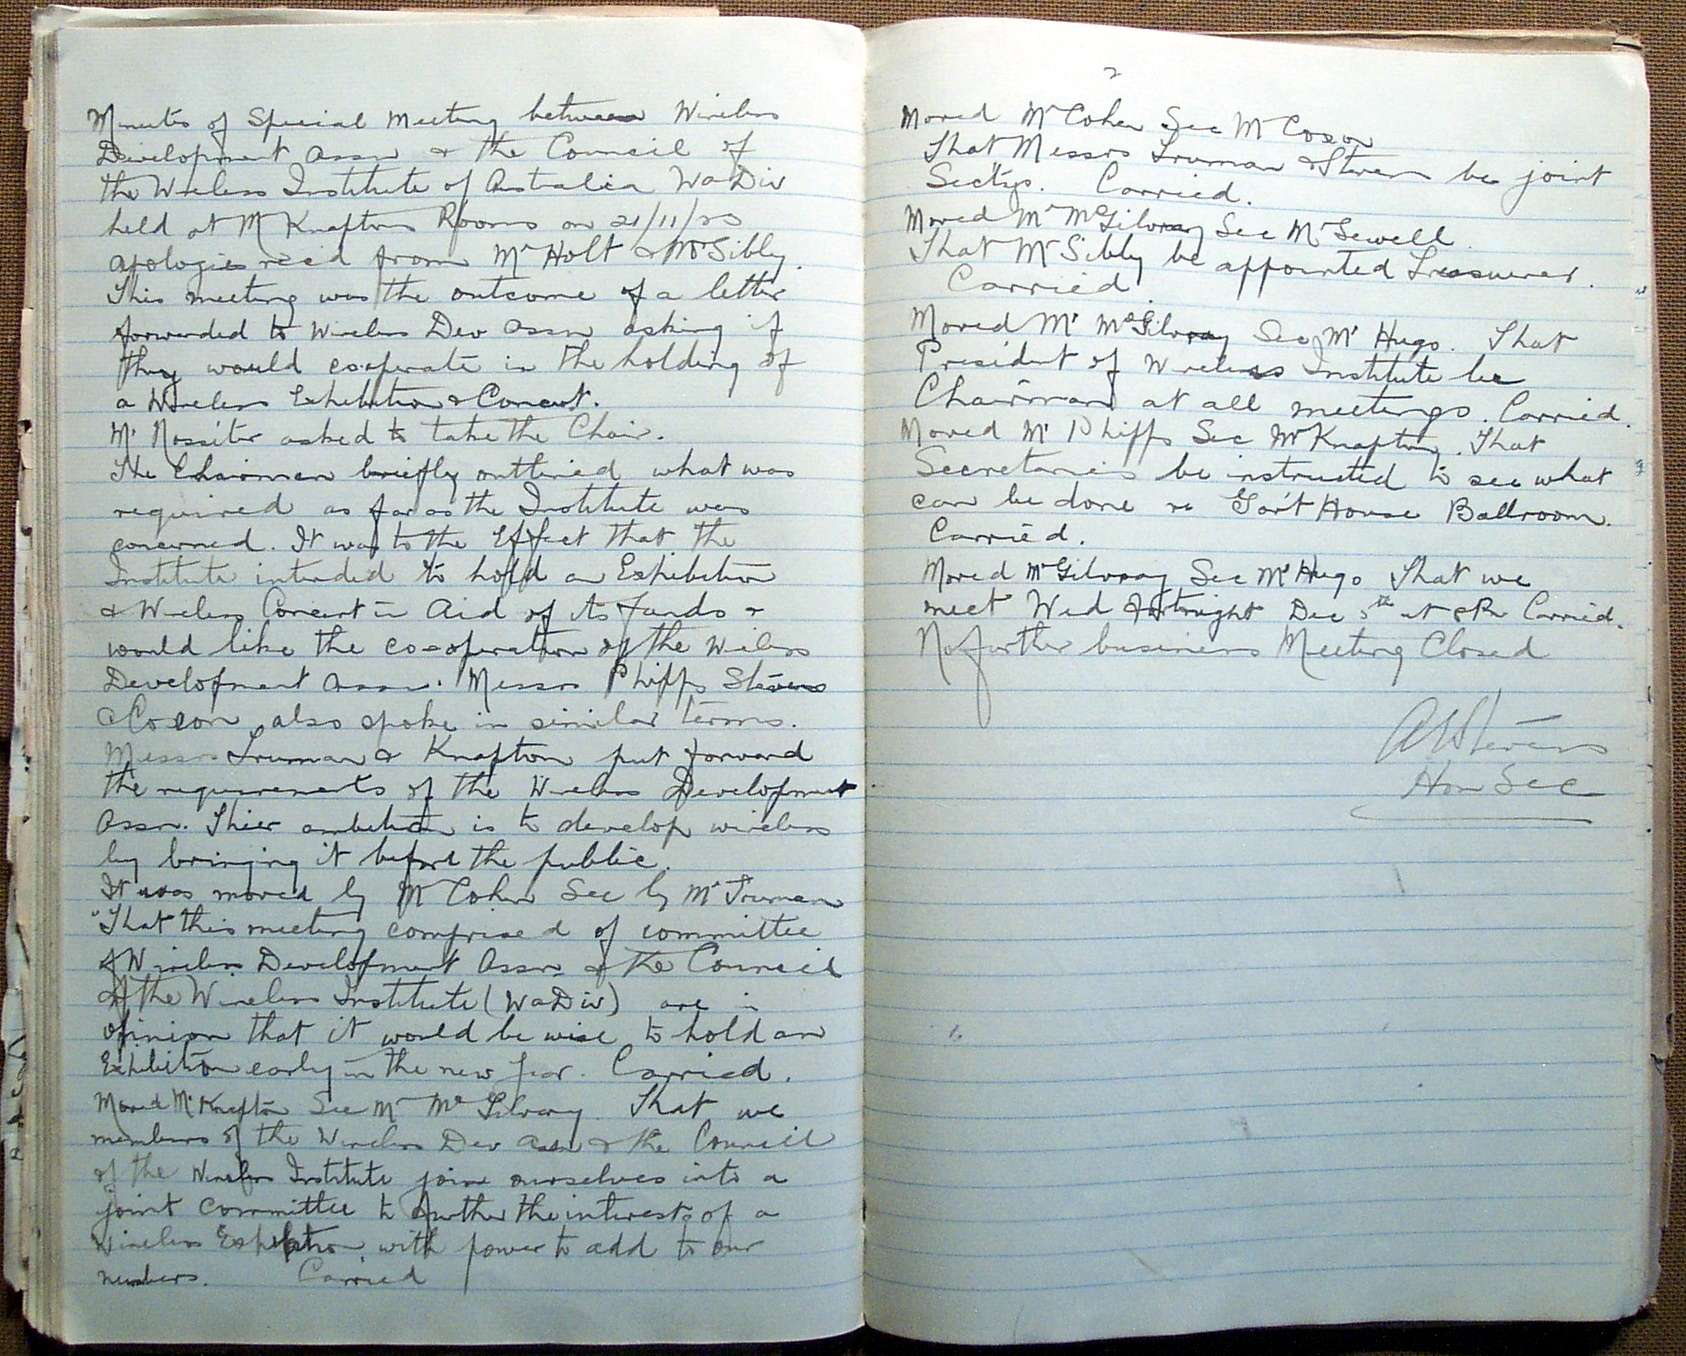 Minutes of Special Meeting between Wireless
Development Assn & the Council of
the Wireless Institute of Australia Wa Div
held at Mr Knapton Rooms on 21/11/23
apologies read from Mr Holt & Mr Sibly.
This meeting was the outcome of a letter
forwarded to Wireless Dev Assn asking if
they would cooperate in the holding of
a Wireless Exhibition & Concert.
Mr Rossiter asked to take the Chair.
The Chairman briefly outlined what was
required as far as the Institute was
concerned. It was to the Effect that the
Institute intended to hold an Exhibition
& Wireless Concert in Aid of its funds &
would like the co-operation of the Wireless
Development Assn. Messrs Phipps Stevens
& Coxon also spoke in similar terms.
Messrs Truman & Knapton put forward
the requirements of the Wireless Development
Assn. Their ambition is to develop wireless
by bringing it before the public.
It was moved by Mr Cohen Sec by Mr Truman
"That this meeting comprised of committee
of Wireless Development Assn & the Council
of the Wireless Institute (Wa Div) are in
opinion that it would be wise to hold an
Exhibition early in the new year. Carried.
Moved Mr Knapton Sec Mr McGilvray. That we
members of the Wireless Dev Assn & the Council
of the Wireless Institute join ourselves into a
joint committee to further the interests of a
Wireless Exhibition with power to add to our
numbers. Carried
2
Moved Mr Cohen Sec Mr Coxon
That Messrs Truman & Stevens be joint
Sectys. Carried.
Moved Mr McGilvray Sec Mr Sewell
That Mr Sibly be appointed Treasurer.
Carried
Moved Mr McGilvray Sec Mr Hugo. That
President of Wireless Institute be
Chairman at all meetings. Carried.
Moved Mr Phipps Sec Mr Knapton. That
Secretaries be instructed to see what
can be done re Gov't House Ballroom.
Carried.
Moved McGilvray Sec Mr Hugo That we
meet Wed fortnight Dec 5th at Carried.
No further business Meeting Closed
Stevens
Hon Sec